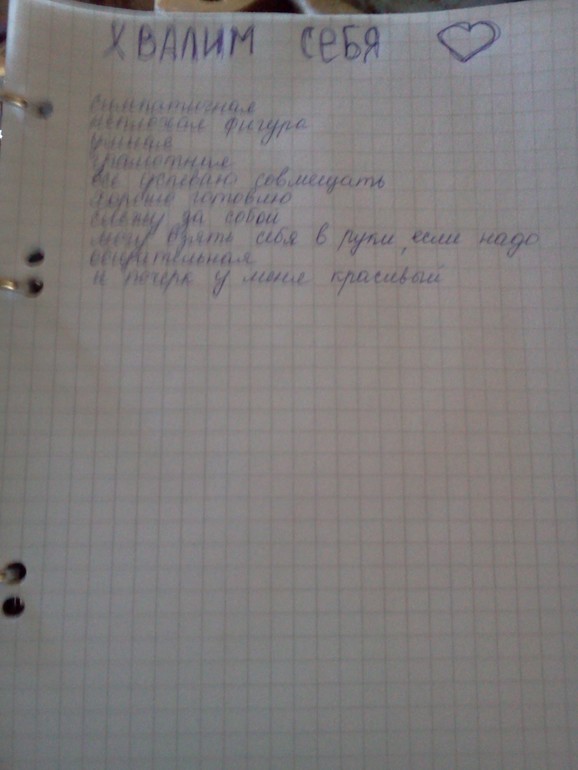 ХВАЛИМ СЕБЯ
симпатичная
неплохая фигура
умная
грамотная
всё успеваю совмещать
хорошо готовлю
слежу за собой
могу взять себя в руки, если надо
обаятельная
и почерк у меня красивый